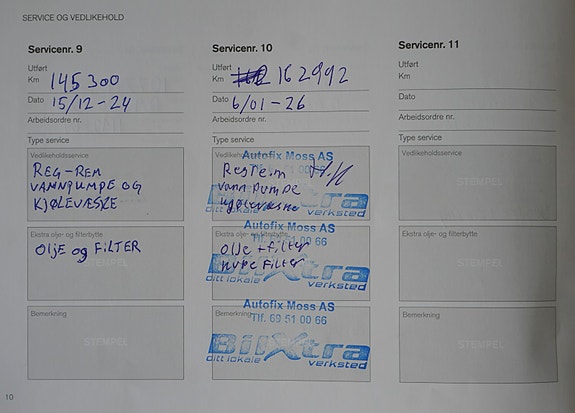 SERVICE OG VEDLIKEHOLD
Servicenr. 9
Utført
Km 145300
Dato 15/12-24
Arbeidsordre nr.
Type service
Vedlikeholdsservice
REG-REM
VANNPUMPE OG
KJØLEVESKE
Ekstra olje- og filterbytte
OLJE og FILTER
Bemerkning
STEMPEL
Servicenr. 10
Utført
Km 162992
Dato 6/01-26
Arbeidsordre nr.
Type service
Autofix Moss AS
vann pumpe
BilXtra
ditt lokale verksted
Autofix Moss AS
Tlf. 69 51 00 66
Olje + filter
filter
ditt lokale verksted
Autofix Moss AS
Tlf. 69 51 00 66
Bemerkning
BilXtra
ditt lokale verksted
Servicenr. 11
Utført
Km
Dato
Arbeidsordre nr.
Type service
Vedlikeholdsservice
STEMPEL
Ekstra olje- og filterbytte
STEMPEL
Bemerkning
STEMPEL
10